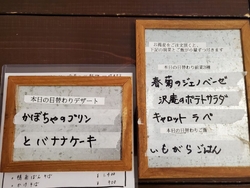 本日の日替わりデザート
かぼちゃのプリン
とバナナケーキ
本日の日替わり副菜3種
春菊のジェノベーゼ
沢庵のポテトサラダ
キャロットラペ
本日の日替わりご飯
いもがらごはん